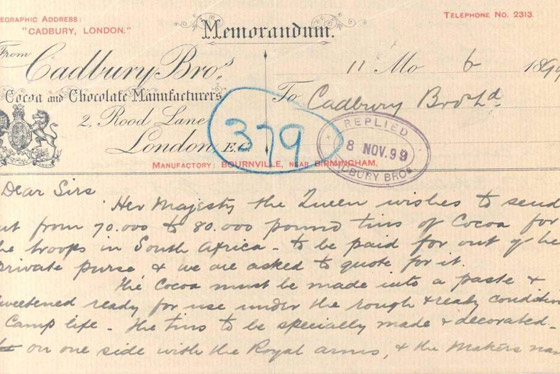 EGRAPHIC ADDRESS:
"CADBURY, LONDON."
Memorandum.
TELEPHONE NO. 2313.
From
Cadbury Bros
Cocoa and Chocolate Manufacturers
2, Rood Lane
London, E.C.
11 Mo 6 1899
To Cadbury Bros Ld
379
REPLIED
8 NOV. 99
DBURY BROS
MANUFACTORY: BOURNVILLE, NEAR BIRMINGHAM.
Dear Sirs
Her Majesty the Queen wishes to send
ut from 70.000 to 80.000 pound tins of Cocoa for
he troops in South Africa - to be paid for out of he
private purse & we are asked to quote for it.
The Cocoa must be made into a paste &
weetened ready for use under the rough & ready conditio
Camp life. The tins to be specially made & decorated.
on one side with the Royal arms, & the Makers na